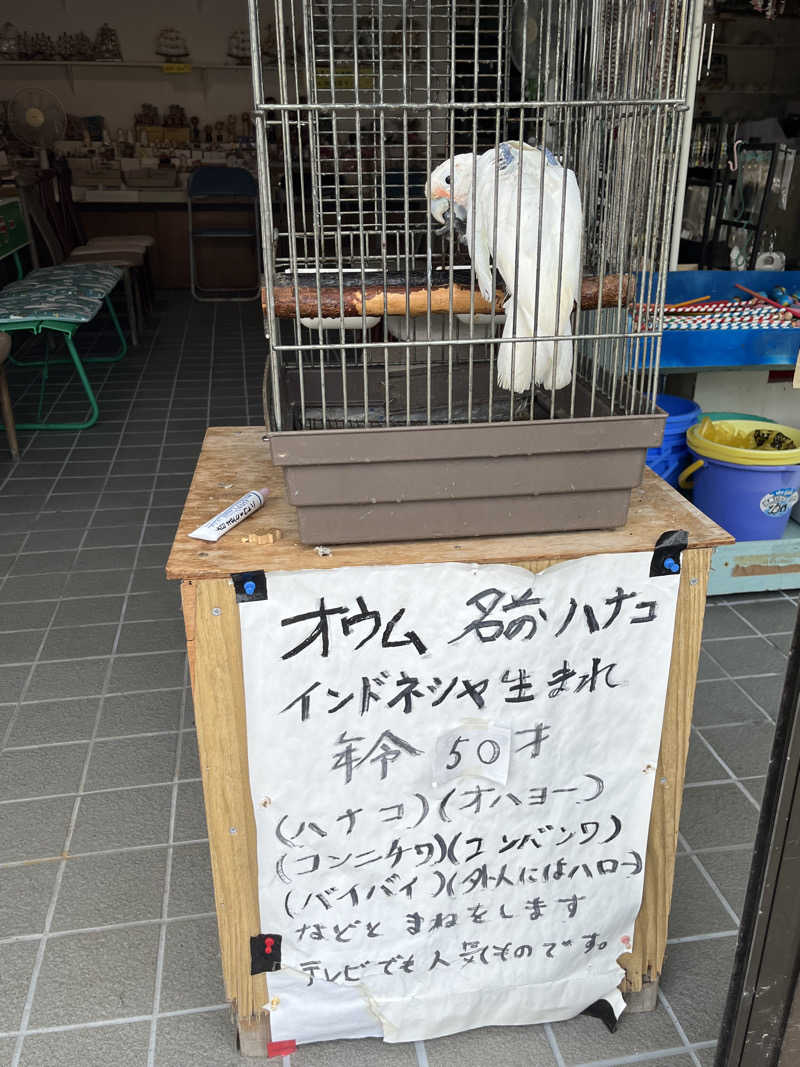 オウム 名前ハナコ
インドネシヤ生まれ
年令 50才
(ハナコ)(オハヨー)
(コンニチワ)(コンバンワ)
(バイバイ)(外人にはハロー)
などと まねをします
テレビでも人気ものです。